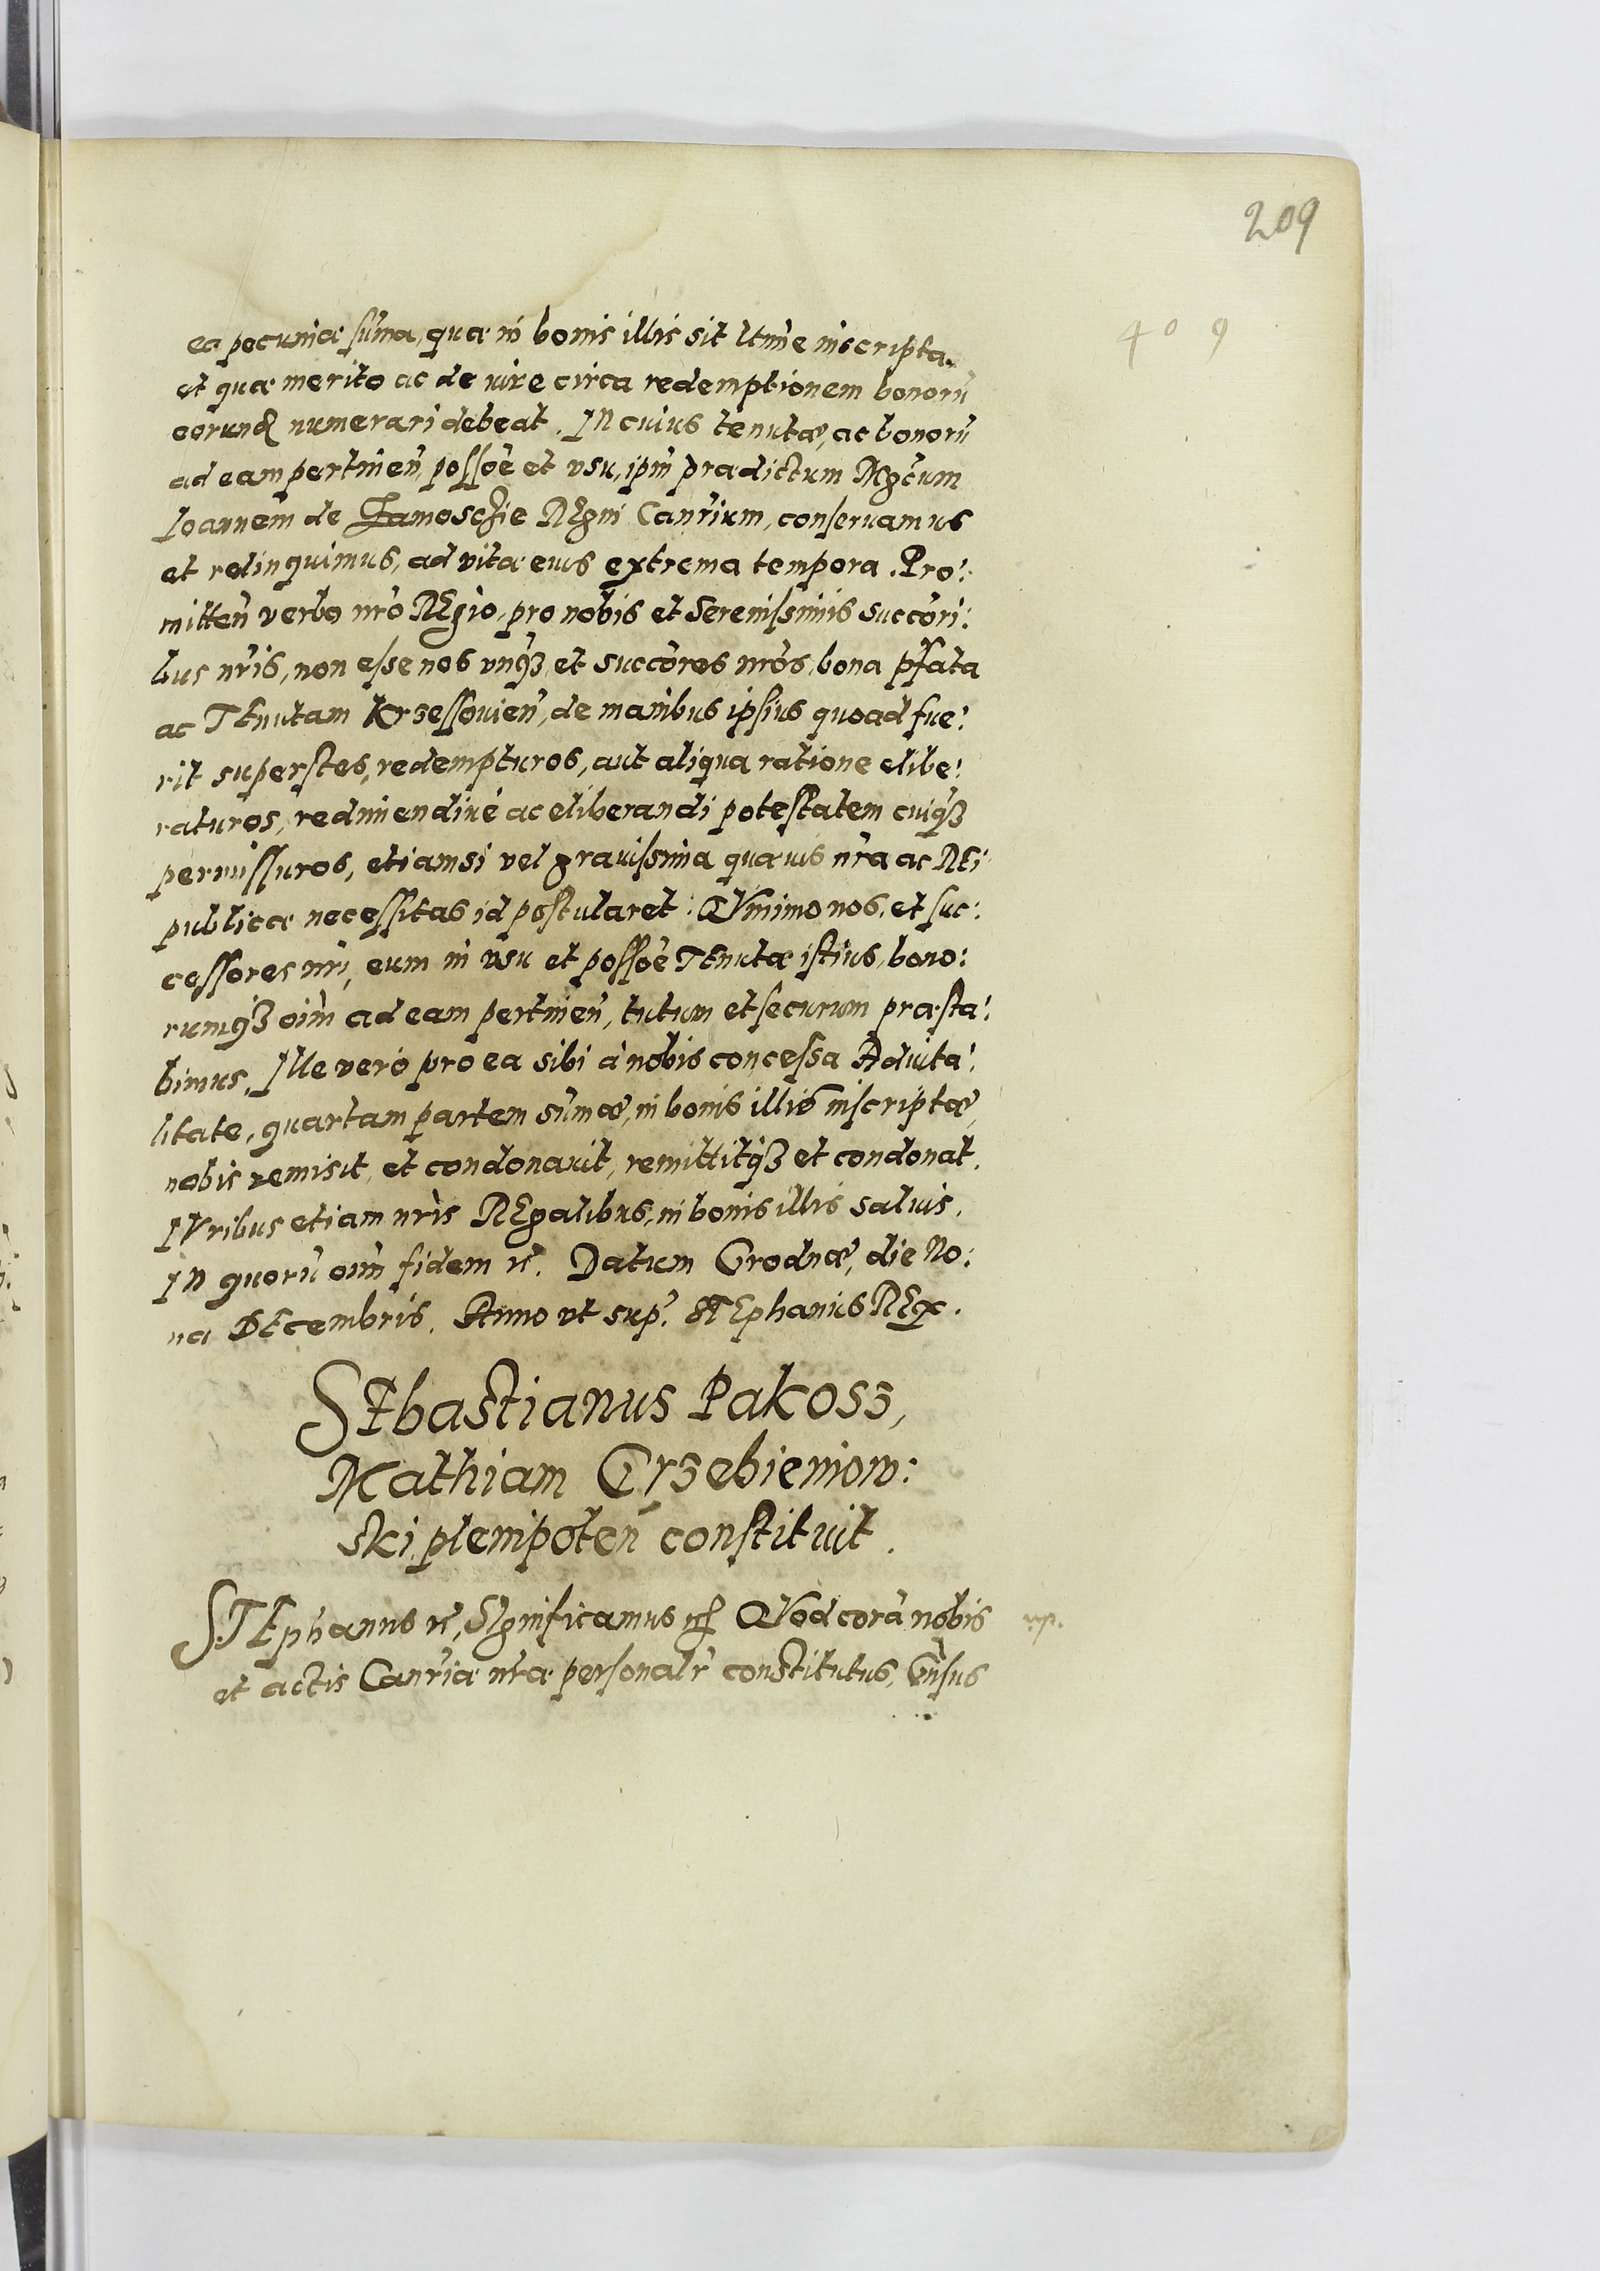 209
409
ea pecuniæ sūma, quæ in bonis illis sit ltīme inscripta.
et quæ merito ac de iure circa redemptionem bonorū
eorund numerari debeat. In cuius tenutæ, ac bonorū
ad eam pertinen̄, possōe et vsu, ipm̄ prædictum Mgcūm
Ioannem de Zamoschie REgni Canr̄ium, conseruamus
et relinquimus, ad vitæ eius extrema tempora. Pro:
mitten̄ verbo nr̄o REgio, pro nobis et Serenissimis succōri:
bus nr̄is, non esse nos vnqȝ, et succōres nr̄os, bona pfata
ac TEnutam Krzessouien̄, de manibus ipsius quoad fue:
rit superstes, redempturos, aut aliqua ratione elibe:
raturos, redimendiue ac eliberandi potestatem cuiqȝ
permissuros, etiamsi vel grauissima quæuis nr̄a ac REi
publicæ necessitas id postularet. QVinimo nos, et suc:
cessores nr̄i, eum in vsu et possōe TEnutæ istius, bono:
rumqȝ oīm ad eam pertinen̄, tutum et securum præsta:
bimus. Ille vero pro ea sibi à nobis concessa Aduita:
litate, quartam partem sūmæ, in bonis illis inscriptæ,
nobis remisit, et condonauit, remittitqȝ et condonat.
IVribus etiam nr̄is REgalibus, in bonis illis saluis.
In quorū oīm fidem etc. Datum Grodnæ, die No:
na DEcembris. Anno vt sup. STEphanus REx.
SEbastianus Pakosz,
Mathiam Grzebieniow:
ski plenipoten̄ constituit.
STEphanus etc. SIgnificamus etc. QVod corā nobis
et actis Canr̄iæ nr̄æ personalr̄ constitutus, Gn̄sus